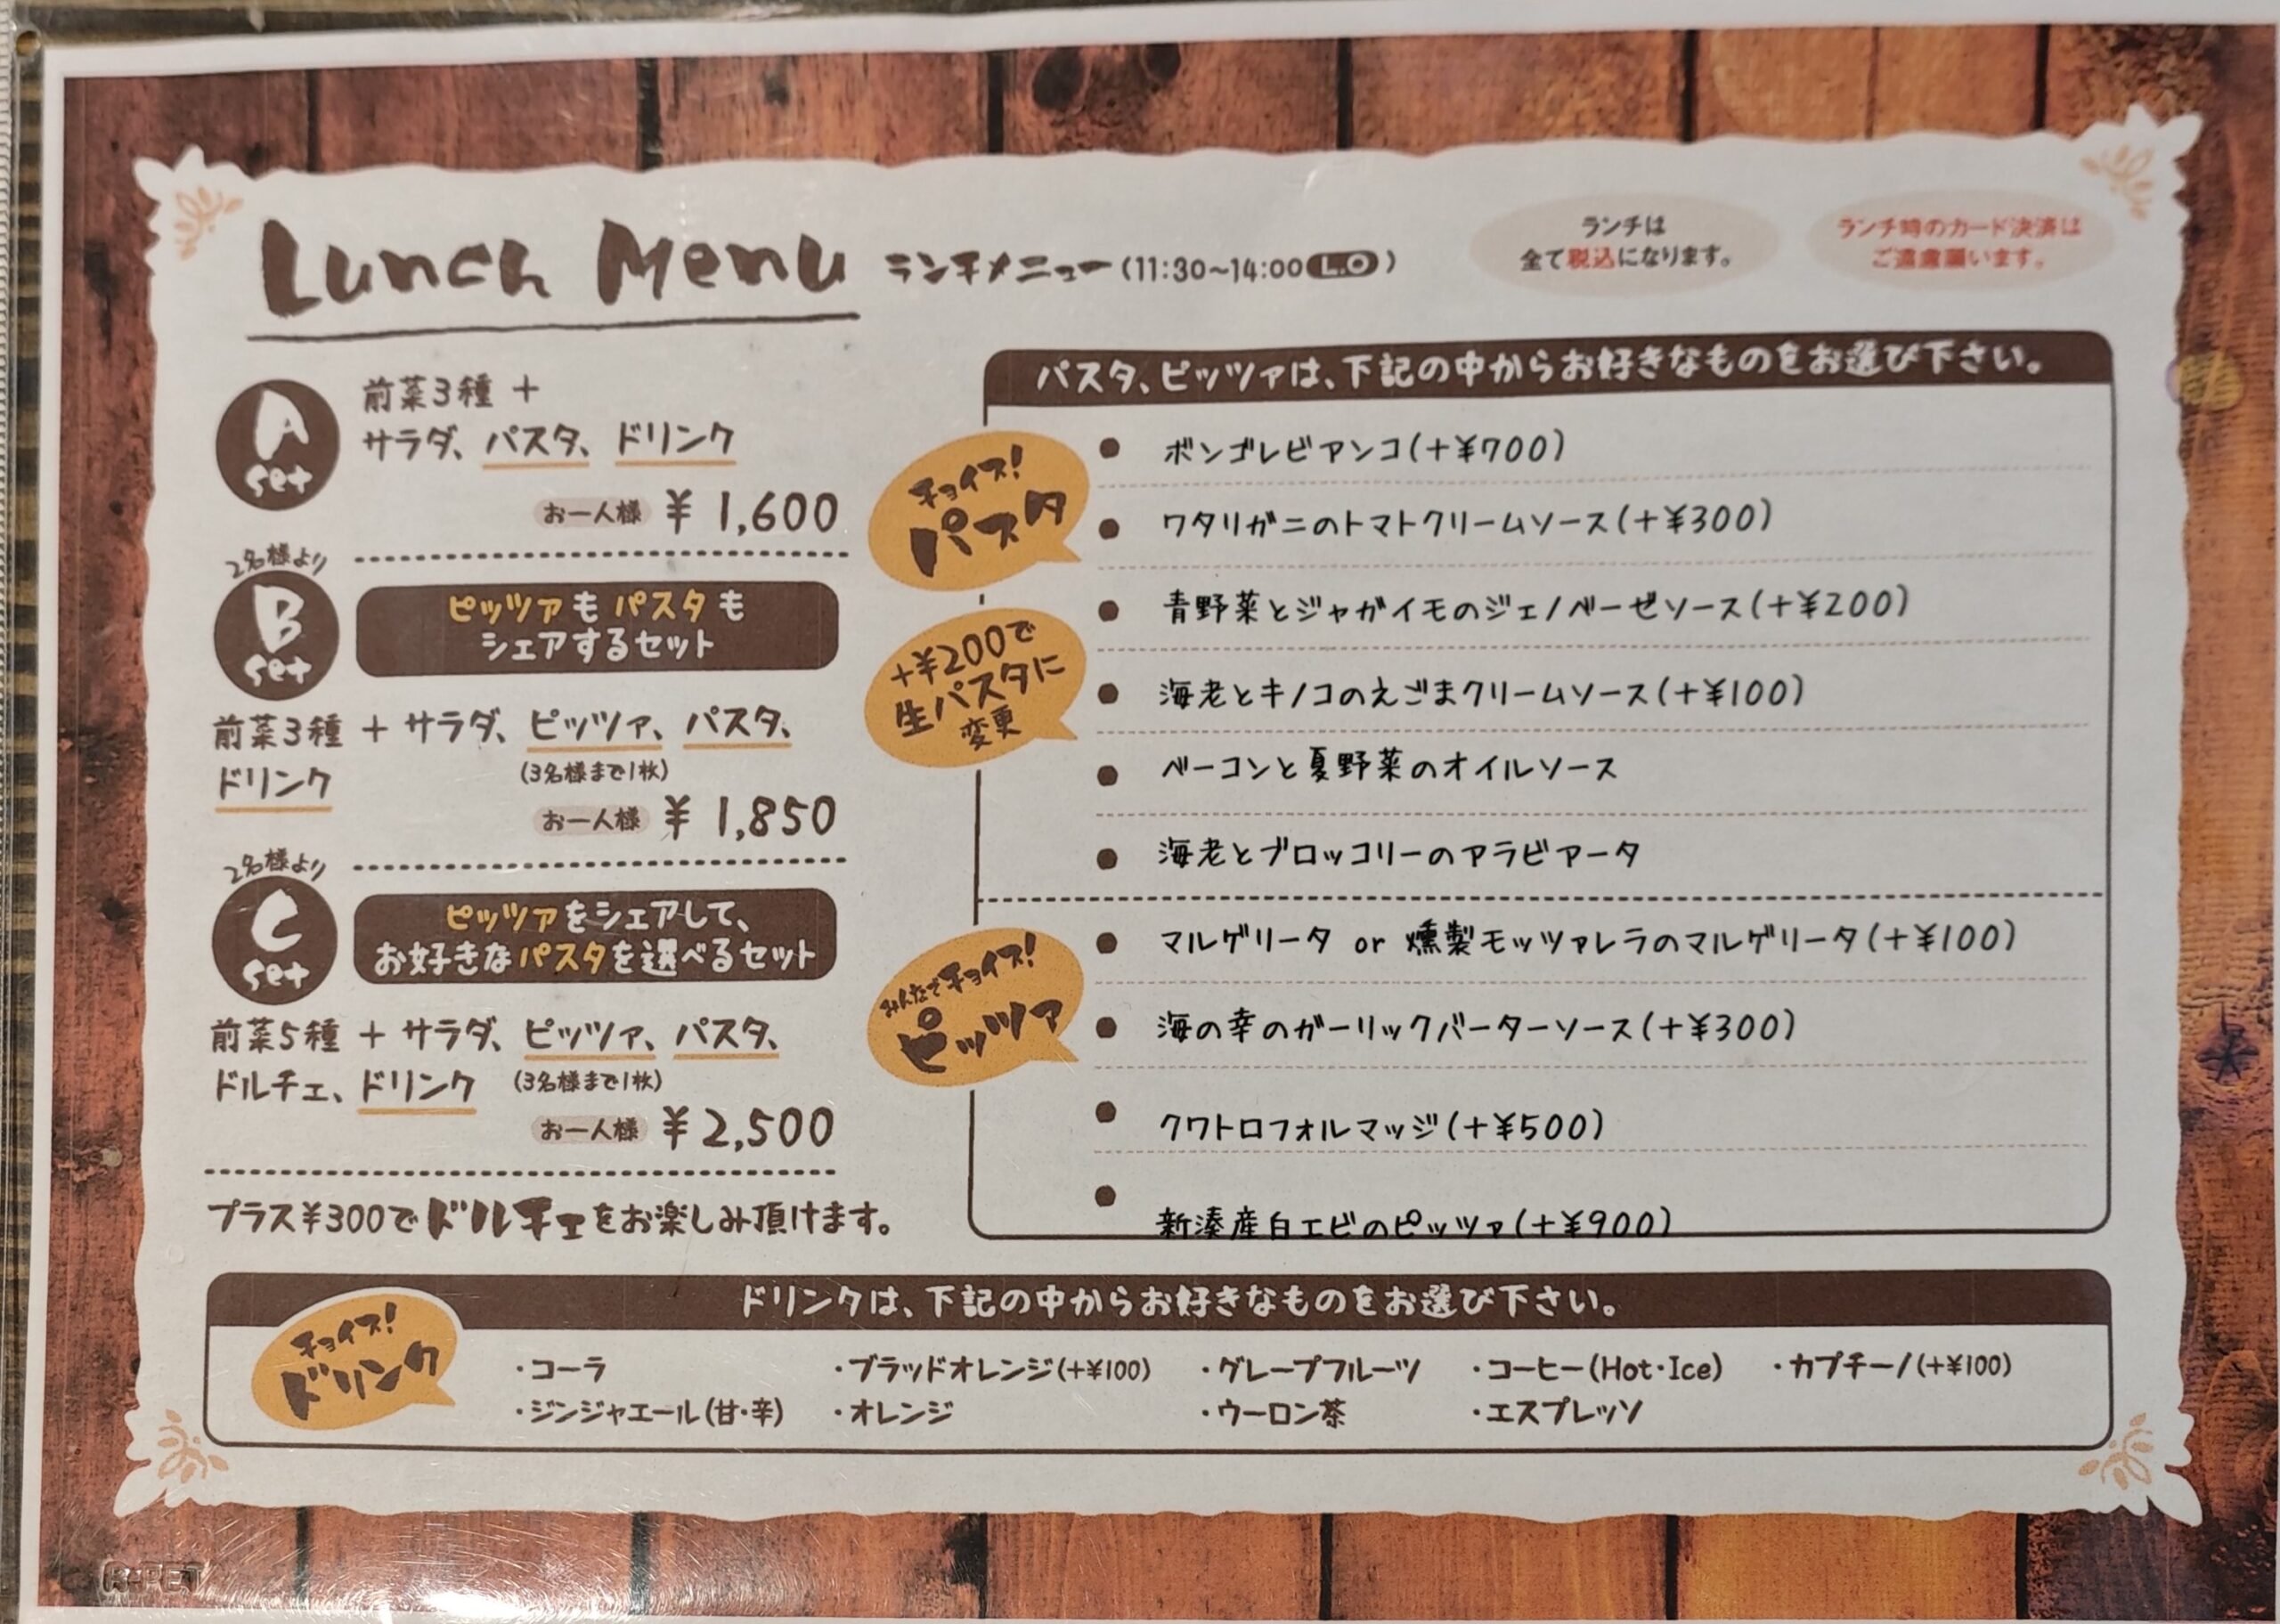 Lunch Menu ランチメニュー(11:30~14:00 L.O)
ランチは
全て税込になります。
ランチ時のカード決済は
ご遠慮願います。
A set
前菜3種 +
サラダ、パスタ、ドリンク
お一人様 ¥ 1,600
2名様より
B set
ピッツァも パスタも
シェアするセット
前菜3種 + サラダ、ピッツァ、パスタ、
(3名様まで1枚)
ドリンク
お一人様 ¥ 1,850
2名様より
C set
ピッツァをシェアして、
お好きなパスタを選べるセット
前菜5種 + サラダ、ピッツァ、パスタ、
ドルチェ、ドリンク (3名様まで1枚)
お一人様 ¥2,500
プラス¥300でドルチェをお楽しみ頂けます。
パスタ、ピッツァは、下記の中からお好きなものをお選び下さい。
チョイス!
パスタ
+¥200で
生パスタに
変更
● ボンゴレビアンコ(+¥700)
● ワタリガニのトマトクリームソース(+¥300)
● 青野菜とジャガイモのジェノベーゼソース(+¥200)
● 海老とキノコのえごまクリームソース(+¥100)
● ベーコンと夏野菜のオイルソース
● 海老とブロッコリーのアラビアータ
みんなでチョイス!
ピッツァ
● マルゲリータ or 燻製モッツァレラのマルゲリータ(+¥100)
● 海の幸のガーリックバーターソース(+¥300)
● クワトロフォルマッジ(+¥500)
● 新湊産白エビのピッツァ(+¥900)
ドリンクは、下記の中からお好きなものをお選び下さい。
チョイス!
ドリンク
・コーラ ・ブラッドオレンジ(+¥100) ・グレープフルーツ ・コーヒー(Hot・Ice) ・カプチーノ(+¥100)
・ジンジャエール(甘・辛) ・オレンジ ・ウーロン茶 ・エスプレッソ
R-PET